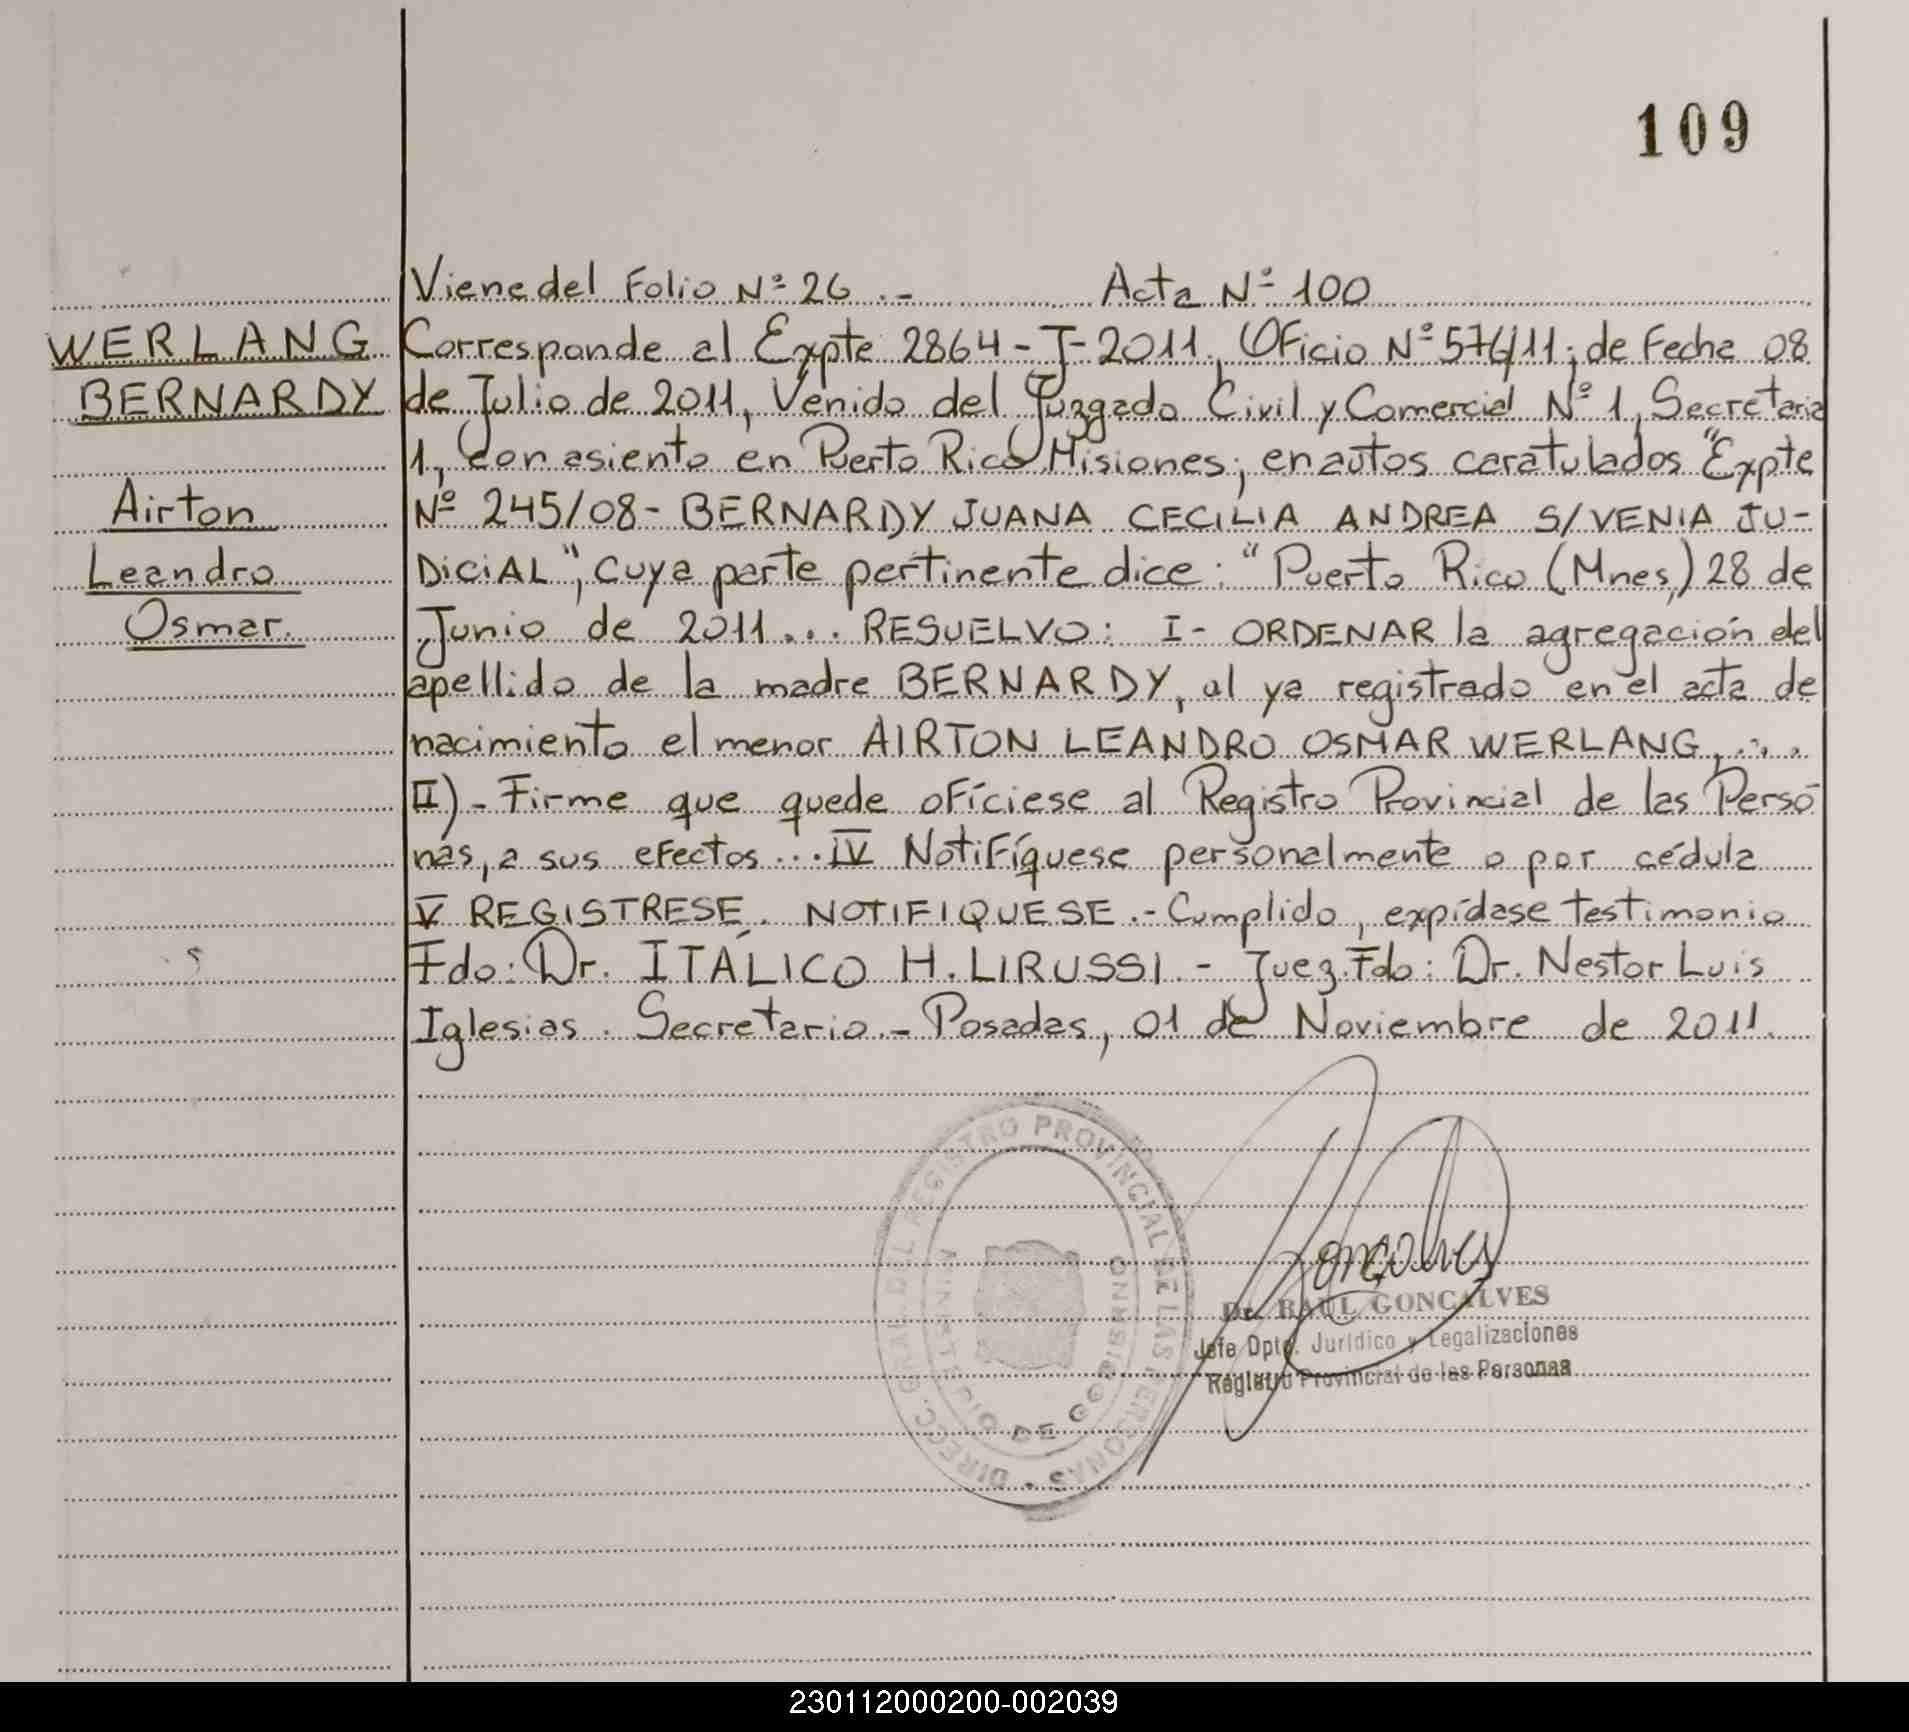 109
Viene del Folio Nº 26 .- Acta Nº 100
WERLANG Corresponde al Expte 2864-J-2011, Oficio Nº 576/11; de Fecha 08
BERNARDY de Julio de 2011, Venido del Juzgado Civil y Comercial Nº 1, Secretaria
1, con asiento en Puerto Rico Misiones; en autos caratulados "Expte
Airton Nº 245/08- BERNARDY JUANA CECILIA ANDREA S/VENIA JU-
Leandro DICIAL", cuya parte pertinente dice: "Puerto Rico (Mnes,) 28 de
Osmar. Junio de 2011... RESUELVO: I- ORDENAR la agregación del
apellido de la madre BERNARDY, al ya registrado en el acta de
nacimiento el menor AIRTON LEANDRO OSMAR WERLANG, ...
II)- Firme que quede ofíciese al Registro Provincial de las Perso
nas, a sus efectos... IV Notifíquese personalmente o por cédula
V REGISTRESE. NOTIFIQUESE.- Cumplido, expídase testimonio
Fdo: Dr. ITÁLICO H. LIRUSSI.- Juez. Fdo: Dr. Nestor Luis
Iglesias. Secretario.- Posadas, 01 de Noviembre de 2011.
DIRECC. GRAL. DEL REGISTRO PROVINCIAL DE LAS PERSONAS
MINISTERIO DE GOBIERNO
Gonçalves
Dr. RAUL GONCALVES
Jefe Dpto. Jurídico y Legalizaciones
Registro Provincial de las Personas
230112000200-002039